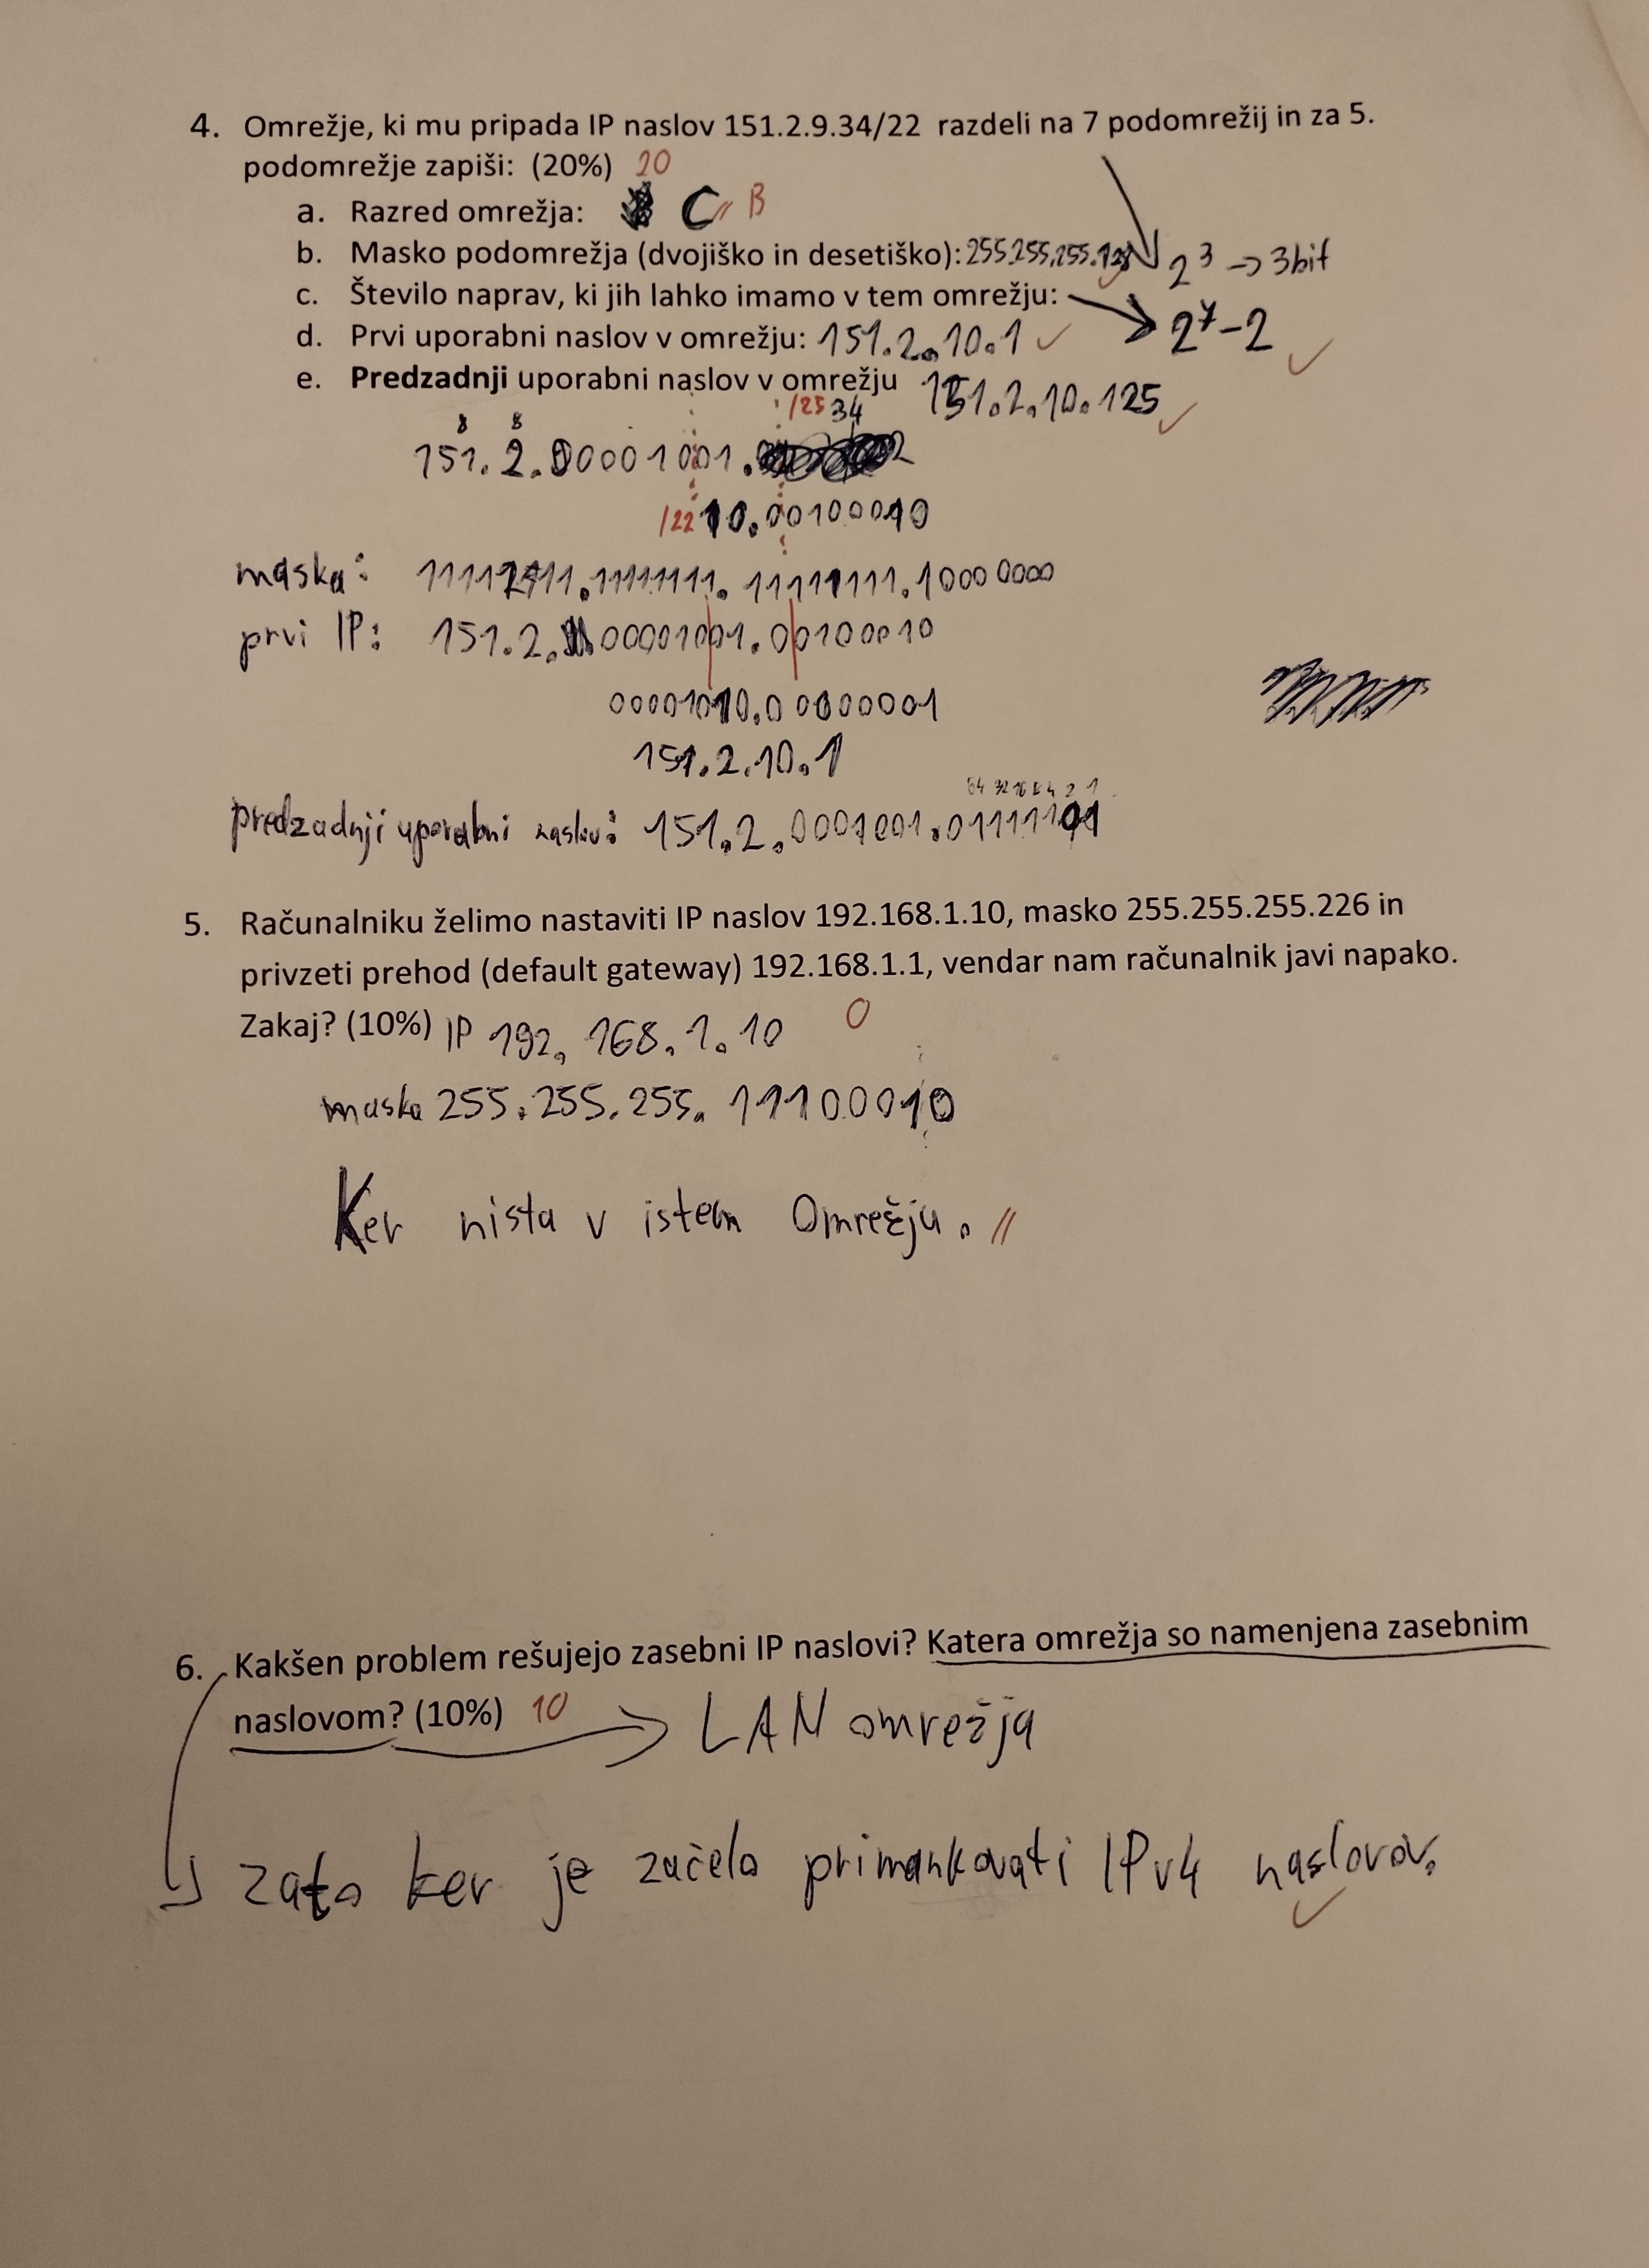 4. Omrežje, ki mu pripada IP naslov 151.2.9.34/22 razdeli na 7 podomrežij in za 5.
podomrežje zapiši: (20%) 20
a. Razred omrežja: C // B
b. Masko podomrežja (dvojiško in desetiško): 255.255.255.128 2³ -> 3bit
c. Število naprav, ki jih lahko imamo v tem omrežju: 2⁷-2
d. Prvi uporabni naslov v omrežju: 151.2.10.1
e. Predzadnji uporabni naslov v omrežju 151.2.10.125
/25 34
8 8
151.2.00001001.
/22 10.00100010
maska: 11111111.11111111.11111111.10000000
prvi IP: 151.2.00001001.00100010
00001010.00000001
151.2.10.1
64 32 16 8 4 2 1
predzadnji uporabni naslov: 151.2.0001001.01111101
5. Računalniku želimo nastaviti IP naslov 192.168.1.10, masko 255.255.255.226 in
privzeti prehod (default gateway) 192.168.1.1, vendar nam računalnik javi napako.
Zakaj? (10%) IP 192.168.1.10 0
maska 255.255.255.11100010
Ker nista v istem Omrežju. //
6. Kakšen problem rešujejo zasebni IP naslovi? Katera omrežja so namenjena zasebnim
naslovom? (10%) 10 LAN omrežja
zato ker je začelo primankovati IPv4 naslovov.